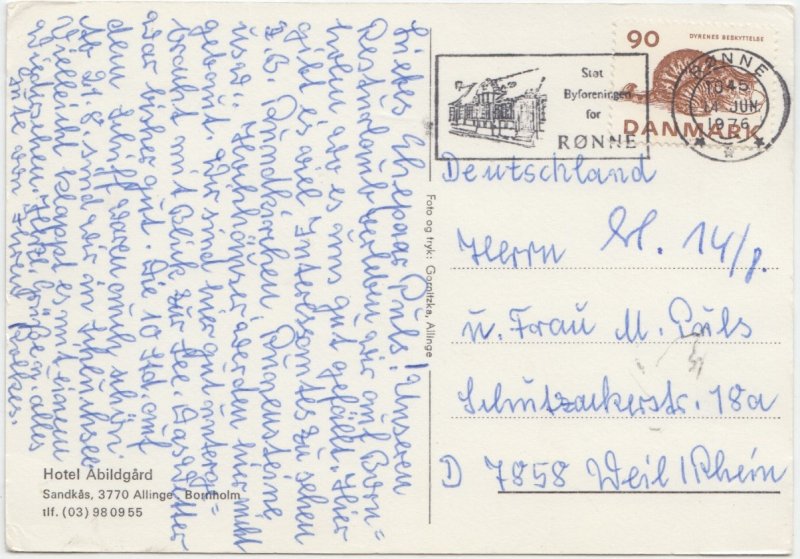 Liebes Ehepaar Puls! Unseren
Resturlaub verleben wir auf Born=
holm, wo es uns gut gefällt. Hier
gibt es viel Interessantes zu sehen
z.B. Rundkirchen, Runensteine
usw. Hochhäuser werden hier nicht
gebaut. Wir sind hier gut unterge=
bracht mit Blick zur See. Das Wetter
war bisher gut. Die 10 Std. auf
dem Schiff waren auch schön.
Ab 21.6. sind wir in
Vielleicht klappt es mit einem
Wiedersehen. Herzl. Grüße u. alles
Gute von Ihren
Hotel Abildgård
Sandkås, 3770 Allinge Bornholm
tlf. (03) 98 09 55
Foto og tryk: Gornitzka, Allinge
Støt
Byforeningen
for
RØNNE
90 DYRENES BESKYTTELSE
DANMARK
RØNNE
1045
14 JUN
1976
Deutschland
Herrn
u. Frau M. Puls
Schützackerstr. 18a
D 7858 Weil/Rhein